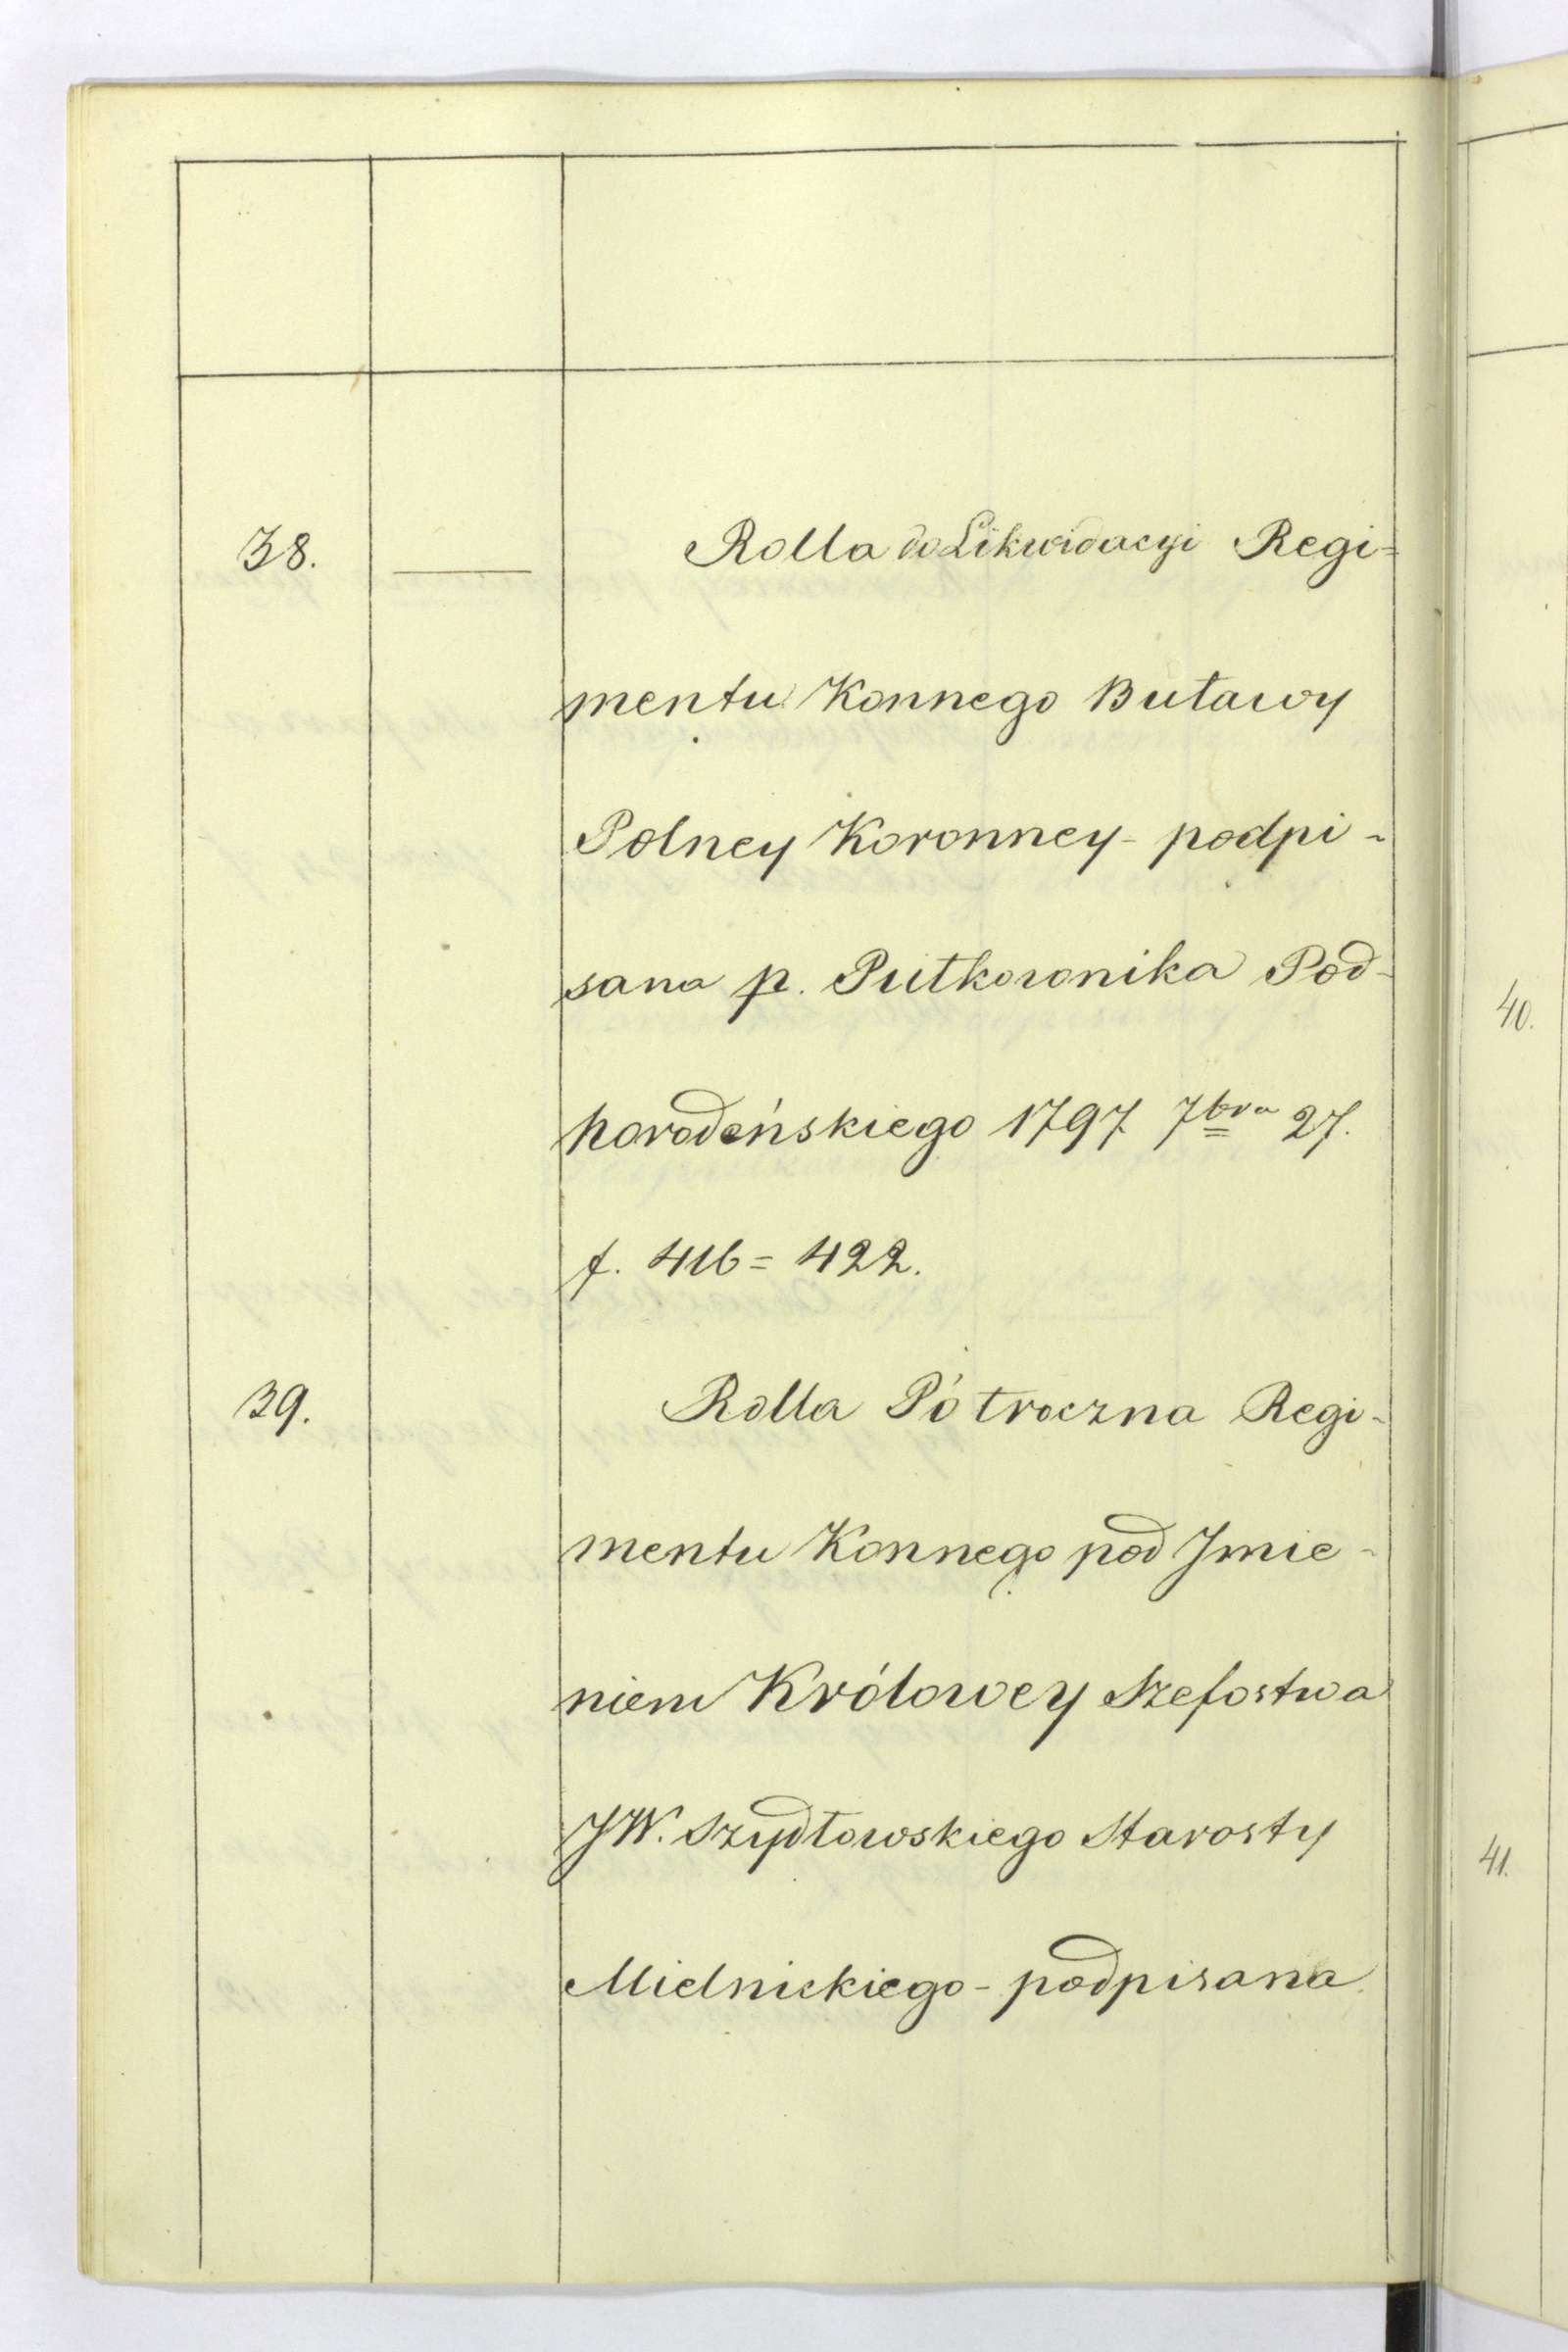 38. — Rolla do Likwidacyi Regi=
mentu Konnego Buławy
Polney Koronney - podpi-
sana p. Pułkownika Pod-
horodeńskiego 1797 7bra 27.
f. 416 = 422.
39. Rolla Półroczna Regi-
mentu Konnego pod Jmie-
niem Królowey Szefostwa
JW. Szydłowskiego Starosty
Mielnickiego - podpisana
40.
41.